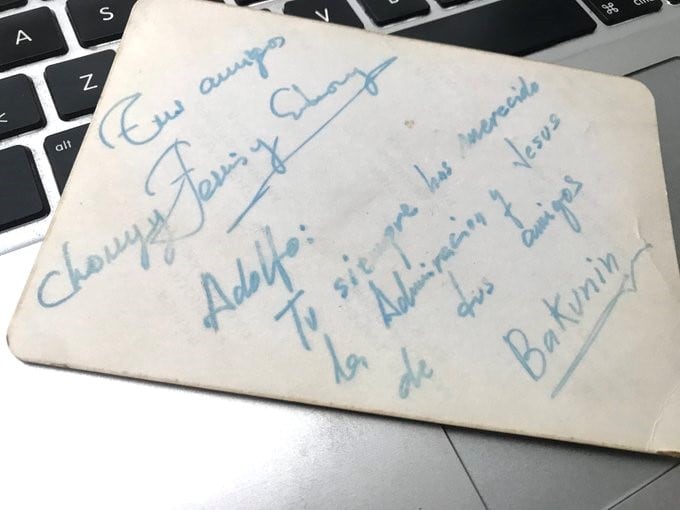 A
S
Z
V
alt
⌘
Tus amigos
Adolfo:
Tu siempre has merecido
la Admiracion y Jesus
de tus amigos
Bakunin